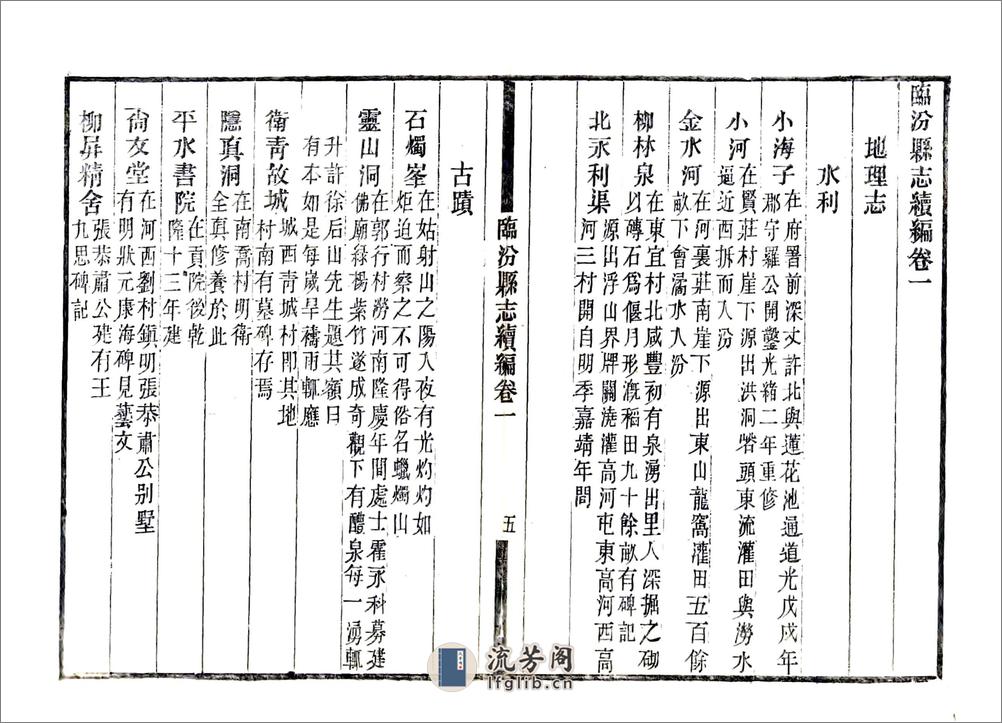 臨汾縣志續編卷一
地理志
水利
小海子在府署前深丈許北與蓮花池通道光戊戌年
郡守羅公開鑿光緒二年重修
小河在賢莊村崖下源出洪洞砦頭東流灌田與澇水
逼近西拆而入汾
金水河在河裏莊南崖下源出東山龍窩灌田五百餘
畝下會潏水入汾
柳林泉在東宜村北咸豐初有泉湧出里人深掘之砌
以磚石爲偃月形漑稻田九十餘畝有碑記
北永利渠源出浮山界牌關澆灌高河屯東高河西高
河三村開自明季嘉靖年間
臨汾縣志續編卷一
五
古蹟
石燭峯在姑射山之陽入夜有光灼灼如
炬迫而察之不可得俗名蠟燭山
靈山洞在郭行村澇河南隆慶年間處士霍永科募建
佛廟綠楊紫竹遂成奇觀下有醴泉每一湧輒
升許徐后山先生題其額曰
有本如是每歲旱禱雨輒應
衛靑故城城西靑城村即其地
村南有墓碑存焉
隱眞洞在南喬村明衛
全眞修養於此
平水書院在貢院後乾
隆十三年建
尙友堂在河西劉村鎭明張恭肅公別墅
有明狀元康海碑見藝文
柳屛精舍張恭肅公建有王
九思碑記
流芳阁
lfglib.cn